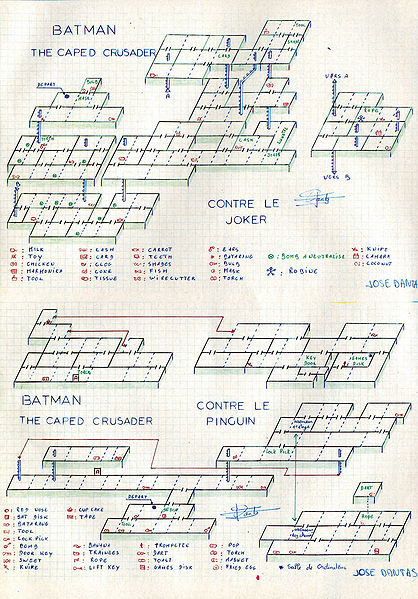 BATMAN
THE CAPED CRUSADER
DEPART
BULB
MASK
CARD
TOOL
VERS A
ROPE
CASH
VERS B
CONTRE LE
JOKER
: MILK
: TOY
: CHICKEN
: HARMONICA
: TOOL
: CASH
: CARD
: CLOG
: CONE
: TISSUE
: CARROT
: TEETH
: SHADES
: FISH
: WIRECUTTER
: EARS
: BATARANG
: BULB
: MASK
: TORCH
: BOMB A NEUTRALISE
: ROBINE
: KNIFE
: CAMERA
: COCONUT
JOSE DANTAS
BATMAN
THE CAPED CRUSADER
KEY
DOOR
GAMES
DISK
CONTRE LE
PINGUIN
LOCK PICK
DEPART
TOOL
DART
ROPE
: RED NOSE
: BAT DISK
: BATARANG
: TOOL
: LOCK PICK
: BOMB
: DOOR KEY
: SWEET
: KNIFE
: CUP CAKE
: TAPE
: BANANA
: TRAINERS
: ROPE
: LIFT KEY
: TROMPETTE
: DART
: TOAST
: GAMES DISK
: POP
: TORCH
: MAGNET
: FRIED EGG
* Salle de Ordinateur
JOSE DANTAS